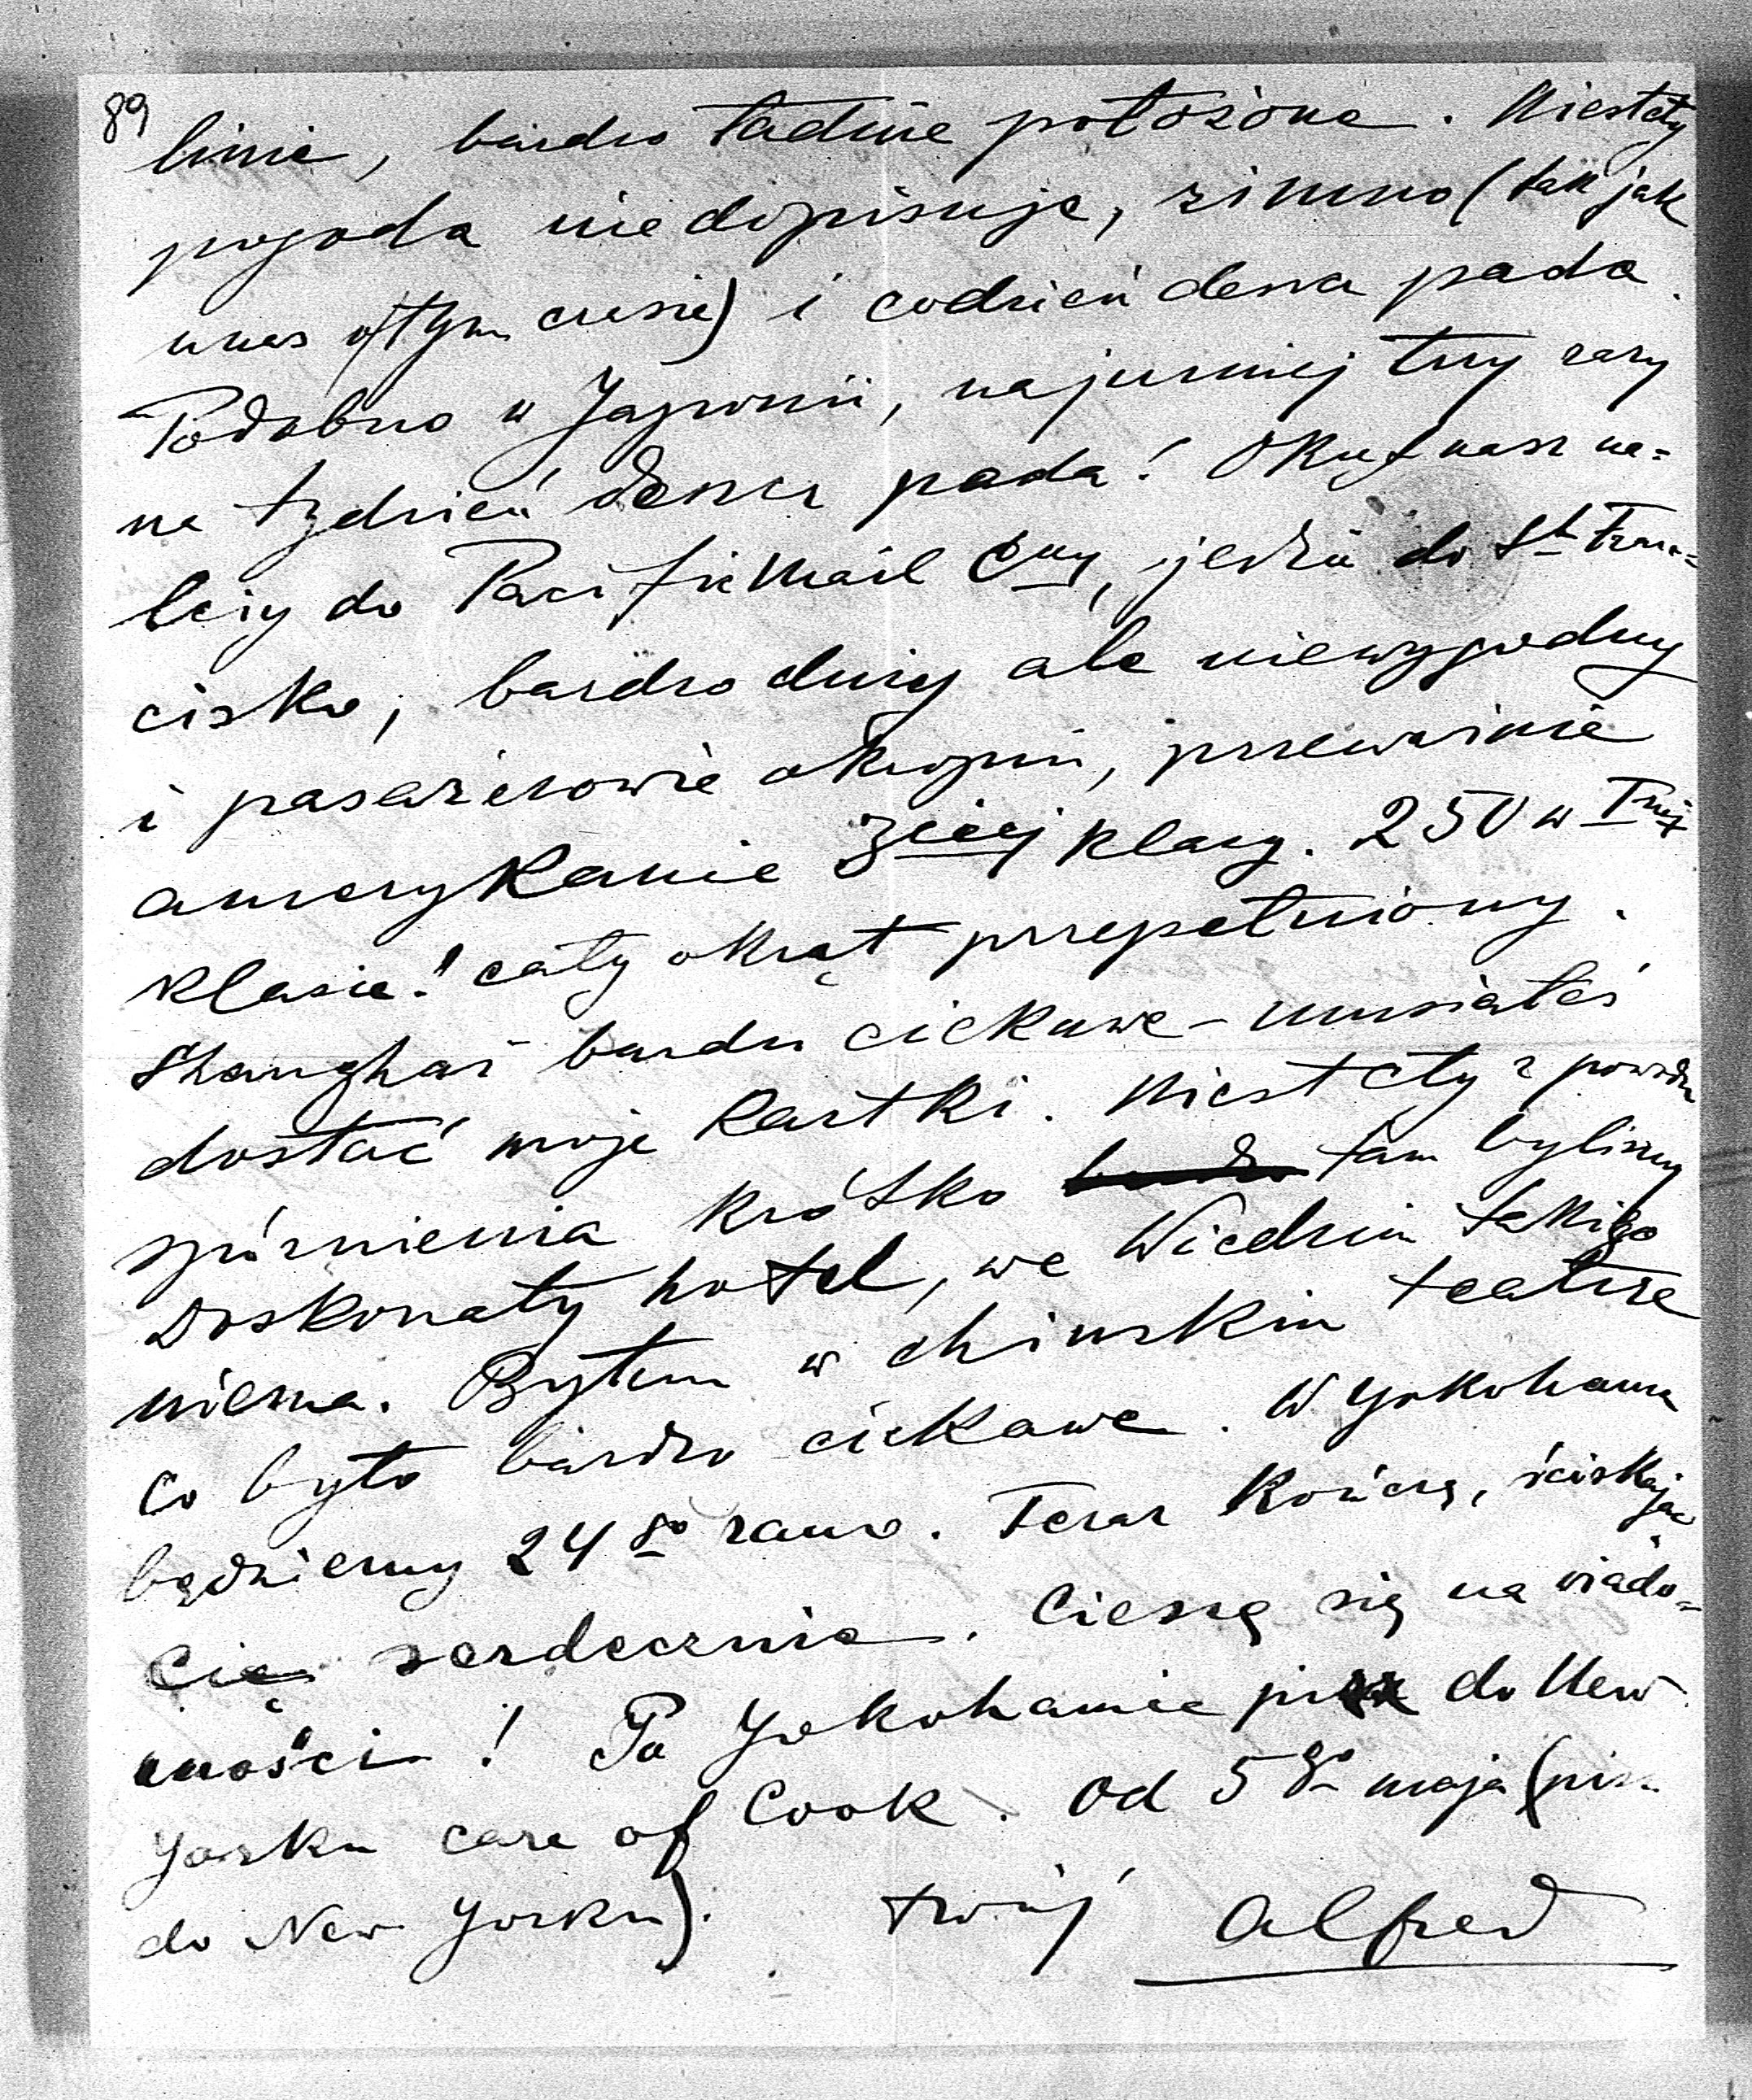 89
linie, bardzo ładnie położone. Niestety
pogoda niedopisuje, zimno (tak jak
u nas o tym czasie) i codzień deszcz pada.
Podobno w Japonii, najmniej trzy razy
na tydzień deszcz pada! Okręt nasz na=
leży do Pacific Mail Cny, jedzie do St Fran=
cisko, bardzo duży ale niewygodny
i pasażerowie okropni, przeważnie
amerykanie 3ciej klasy. 250 w Iszej
klasie! cały okręt przepełniony.
Shanghai bardzo ciekawe - musiałeś
dostać moje kartki. Niestety z powodu
spóźnienia krótko tam byliśmy
Doskonały hotel, we Wiedniu takiego
niema. Byłem w chinskim teatrze
co było bardzo ciekawe. W Yokohama
będziemy 24go rano. Teraz kończę, ściskając
Cię serdecznie. Cieszę się na wiado=
mości! Po Yokohamie pisz do New
Yorku care of Cook. Od 5go maja (pisz
do New Yorku). twój Alfred